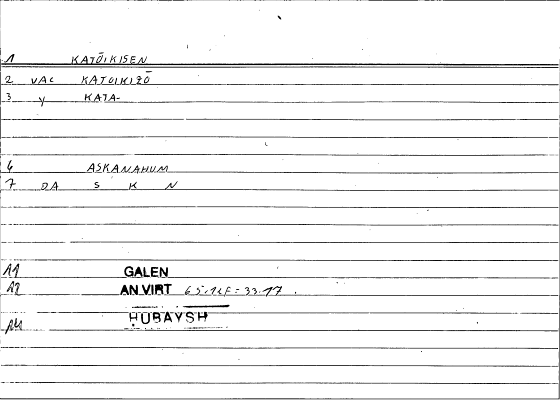 1 KATŌIKISEN
2 VAC KATOIKIZŌ
3 y KATA-
6 ASKANAHUM
7 DA S K N
A1 GALEN
A2 AN.VIRT 65.12F = 33.17.
A4 ḤUBAYSH